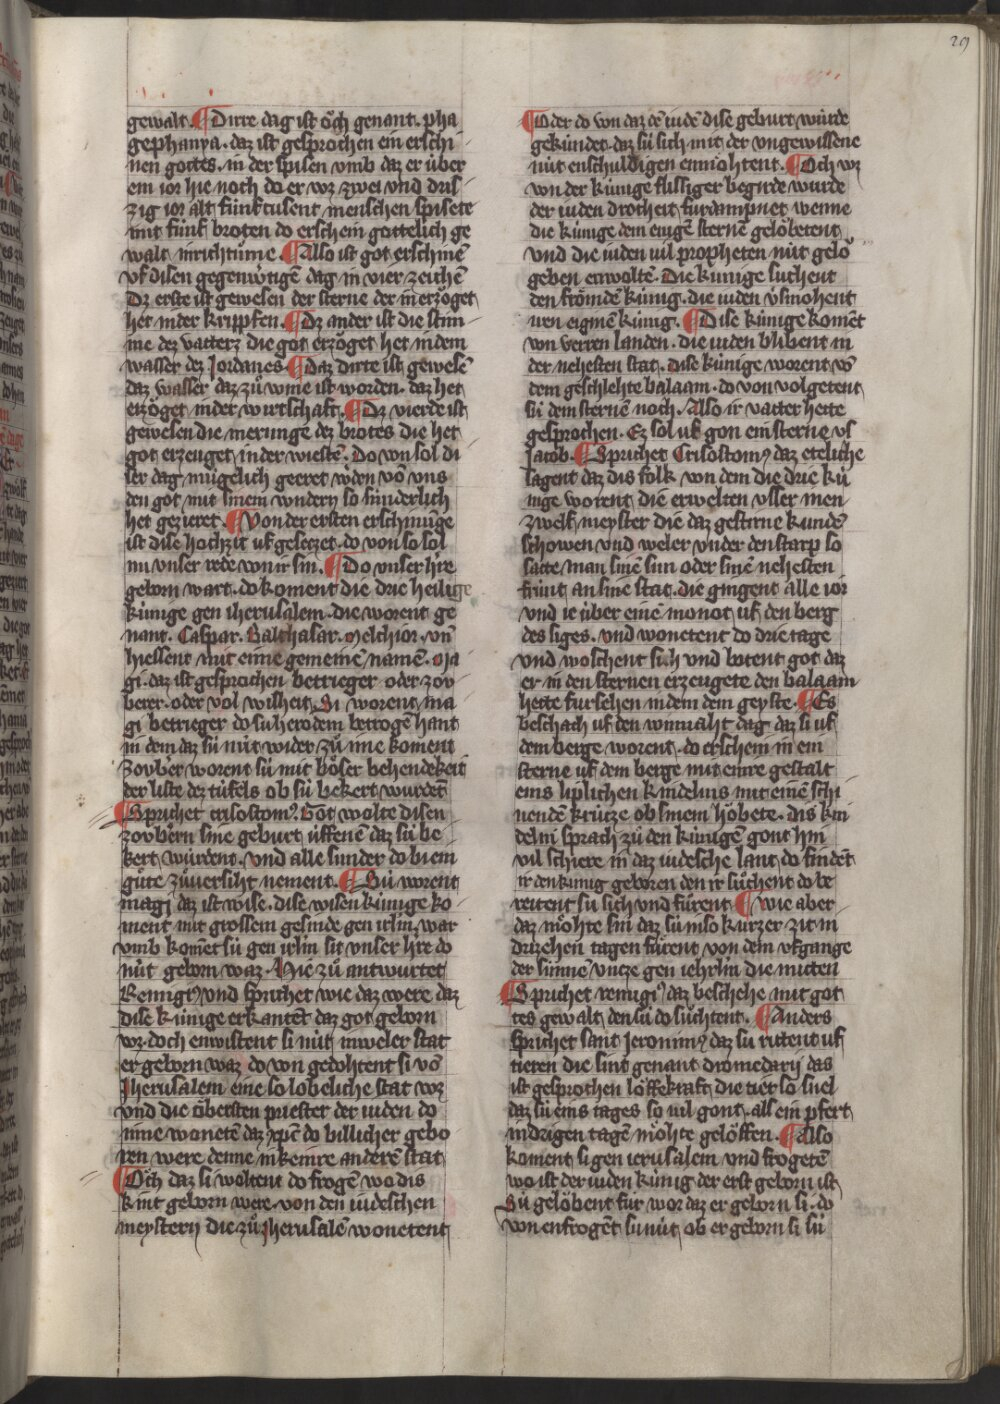 29
gewalt. ¶ Dirre dag ist öch genant. pha
gephanya. daz ist gesprochen ein erschi-
nen gottes. in der spisen vmb daz er über
ein ior hie noch do er wz zwei vnd dris-
zig ior alt fúnf tusent menschen spisete
mit fúnf broten do erschein gottelich ge
walt in richtúme ¶ Also ist got erschinē
vf disen gegenwṫigē dag in vier zeichē
Dz erste ist gewesen der sterne der in erzöget
het in der krippfen. ¶ Dz ander ist die stim-
me dez vatterz die got erzöget het in dem
wasser dez Jordanes. ¶ daz dirte ist gewesē
daz wasser daz zů wine ist worden. daz het
erzöget in der wirtschaft. ¶ Dz vierde ist
gewesen die merunge dez brotes die het
got erzeuget in der wiestē. Do von sol di
ser dag múgelich geeret wdēn vō vns
den got mit sinem wndern so sunderlich
het gezieret. ¶ Von der ersten erschinūge
ist dise hochzit uf gesetzet. do von so sol
nu vnser rede von ir sin. ¶ Do vnser hre
geborn wart. do koment die drie heilige
kúnige gen iherusalem. die worent ge
nant. Caspar. Balthasar. Melchior. vn̄
hiessent mit eime gemeinē namē. Ma
gi. daz ist gesprochen betrieger oder zov
berer. oder vol wisheit. Si worent ma
gi betrieger do su herodem betrogē hant
in dem daz sú nút wider zů ime koment
Zovber worent sú mit böser behendekeit
der liste dez túfels ob sú bekert wurdēt
¶ Sprichet crisostom9. Got wolte disen
zovbern sine geburt úffenē daz sú be
kert wúrdent. vnd alle sunder do biem
gůte zůversiht nement. ¶ Sú worent
magi daz ist wise. dise wisen kúnige ko-
ment mit grossem gesinde gen irlm. war
vmb komēt sú gen irlm sit vnser hre do
nút geborn waz. Hie zů antwurtet
Remigi9 vnd sprichet wie daz were daz
dise kúnige erkantēt daz got geborn
wz. doch enwistent si nút in weler stat
er geborn waz do von gedohtent si vō
Jherusalem eine so lobeliche stat wz
vnd die öbersten priester der iuden do
inne wonetē daz xpēs do billicher gebo
ren were denne in keinre anderē stat
¶ Öch daz si wöltent do frogē wo dis
kint geborn were. von den iudeschen
meystern die zů Jherusalē wonetent
¶ Oder do von daz dē iudē dise geburt wúrde
gekúndet. daz sú sich mit der vngewissene
nút enschuldigen enmohtent. ¶ Och wz
von der kúnige flissiger begirde wurde
der iuden drocheit furdampnet wenne
die kúnige dem einigē sternē gelöbetent
vnd die iuden vil propheten nút gelö
geben enwoltē. Die kúnige suchent
den frömdē kúnig. die iuden v̓smohent
iren eiginē kúnig. ¶ Dise kúnige komēt
von verren landen. die iuden blibent in
der nehesten stat. Dise kúnige worent vō
dem geschlehte balaam. do von volgetent
sú dem sternē noch. Also ir vatter hette
gesprochen. Ez sol uf gon ein sterne vs
Jacob. ¶ Sprichet Crisostom9 daz eteliche
sagent daz dis folk von dem die drie kú
nige worent. die erwelten vsser inen
zwelf meyster die daz gestirne kundē
schowen vnd weler vnder den starp so
satte man sinē sun oder sinē nehesten
frúnt an sine stat. die gingent alle ior
vnd ie über einē monot uf den berg
des siges. vnd wonetent do drie tage
vnd woschent sich vnd botent got daz
er in den sternen erzeugete den balaam
hette fursehen in dem geyste. ¶ Es
beschach uf den winnaht dag daz si uf
dem berge worent. do erschein in ein
sterne uf dem berge mit einre gestalt
eins liplichen kindelins mit einē schi
nendē krúcze ob sinem höbete. dis kin
delin sprach zů den kúnigē gont hin
vil schiere in daz iudesche lant do findēt
ir den kúnig geboren den ir sůchent do be
reitent sú sich vnd fůrent ¶ Wie aber
daz möhte sin daz sú in so kurzer zit in
drizehen tagen fůrent von dem vfgange
der sunnē vncze gen iehrlm die mitten
¶ Sprichet remigi9 daz beschehe mit got
tes gewalt den sú do sůchtent. ¶ Anders
sprichet sant Jeronim9 daz sú rittent uf
tieren die sint genant dromedarij das
ist gesprochen löffekraft. die tier so snel
daz sú eins tages so vil gont. als ein pfert
in drigen tagē möhte gelöffen. ¶ Also
koment si gen ierusalem vnd frogetē
wo ist der iuden kúnig der erst geborn ist
Sú gelöbent fur wor daz er geborn si. do
von enfrogēt sú nút ob er geborn si sú